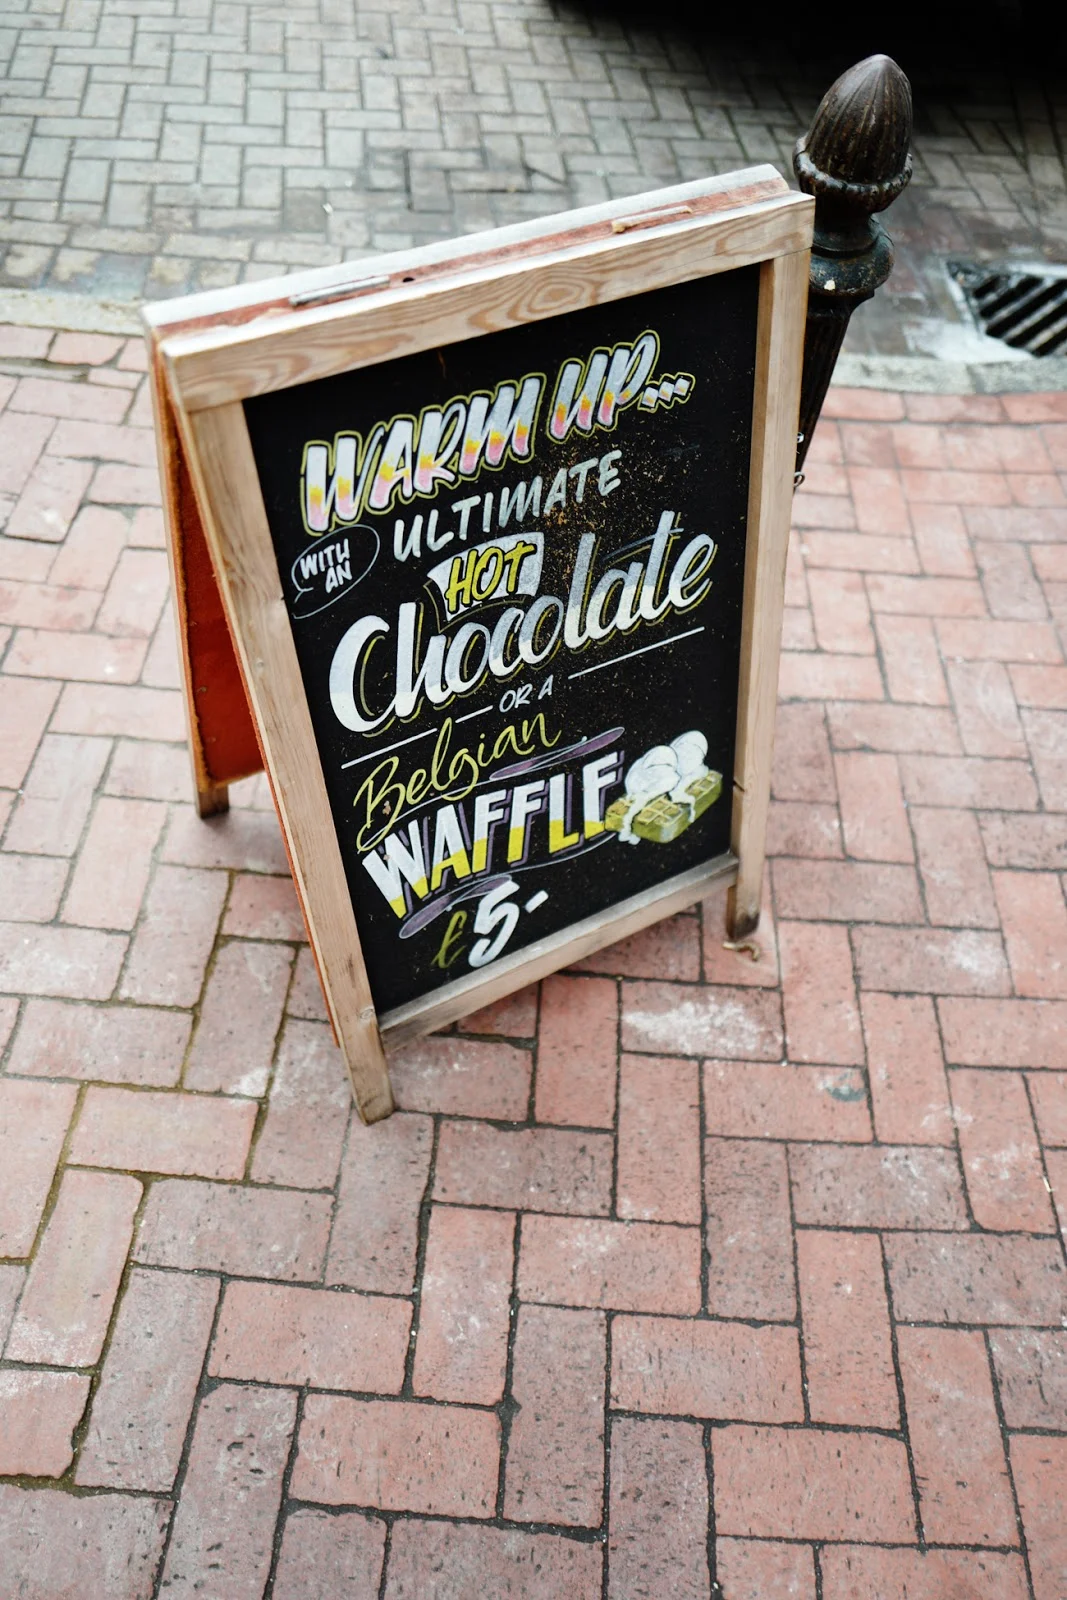 WARM UP...
WITH AN
ULTIMATE
HOT
Chocolate
OR A
Belgian
WAFFLE
£5-